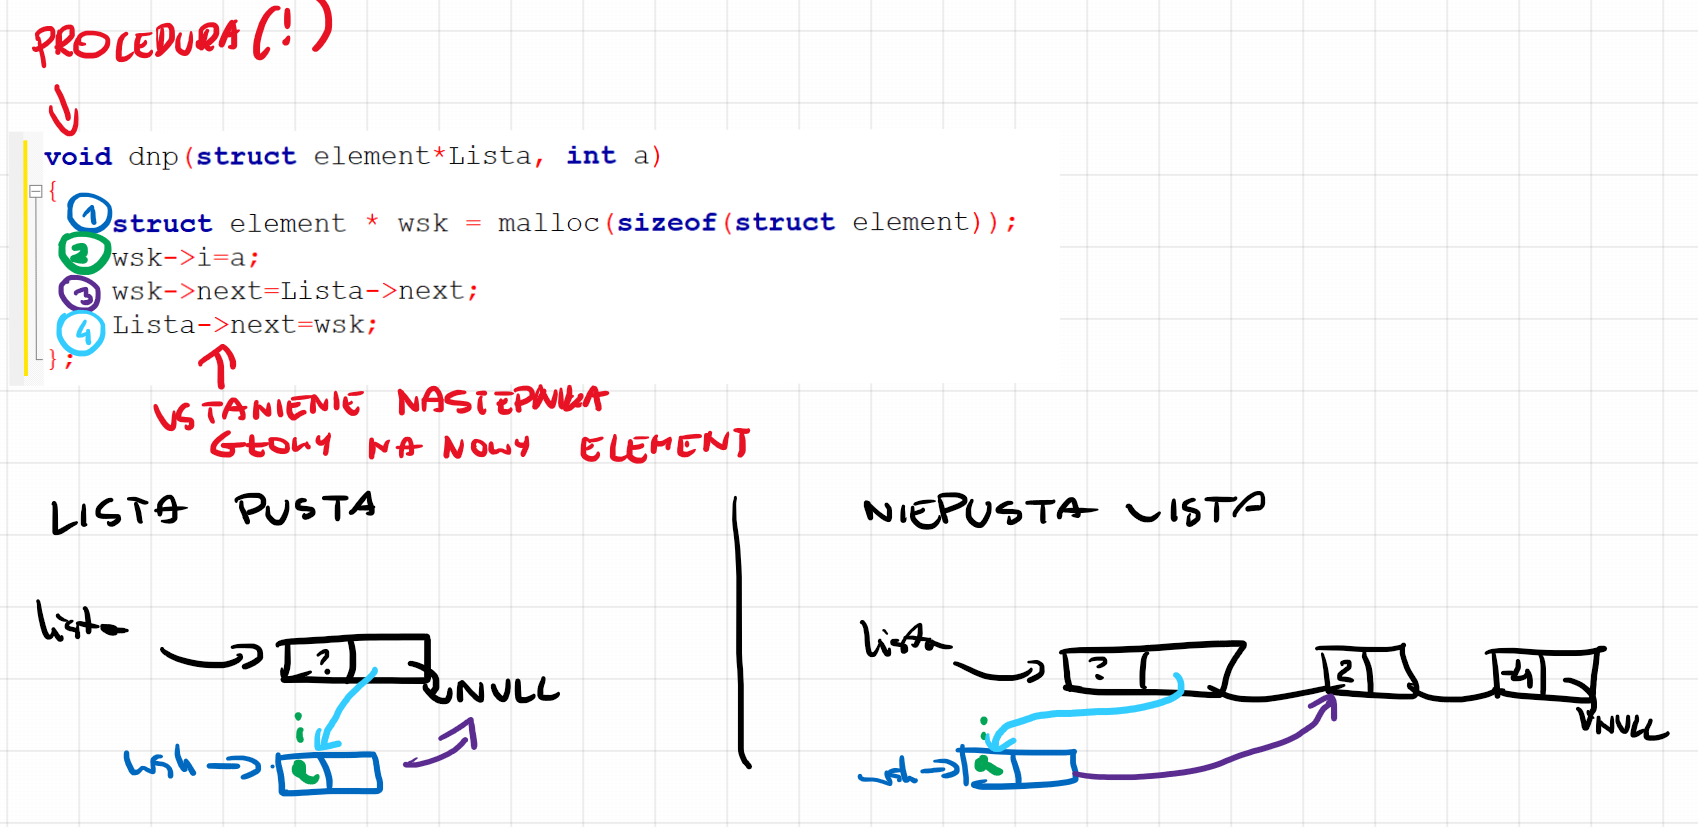 PROCEDURA(!)
void dnp(struct element*Lista, int a)
{
1 struct element * wsk = malloc(sizeof(struct element));
2 wsk->i=a;
3 wsk->next=Lista->next;
4 Lista->next=wsk;
};
USTANIENIE NASTĘPNIKA
GŁOWY NA NOWY ELEMENT
LISTA PUSTA
NIEPUSTA LISTA
Lista
?
NULL
i
wsk
a
Lista
?
2
-4
NULL
i
wsk
a